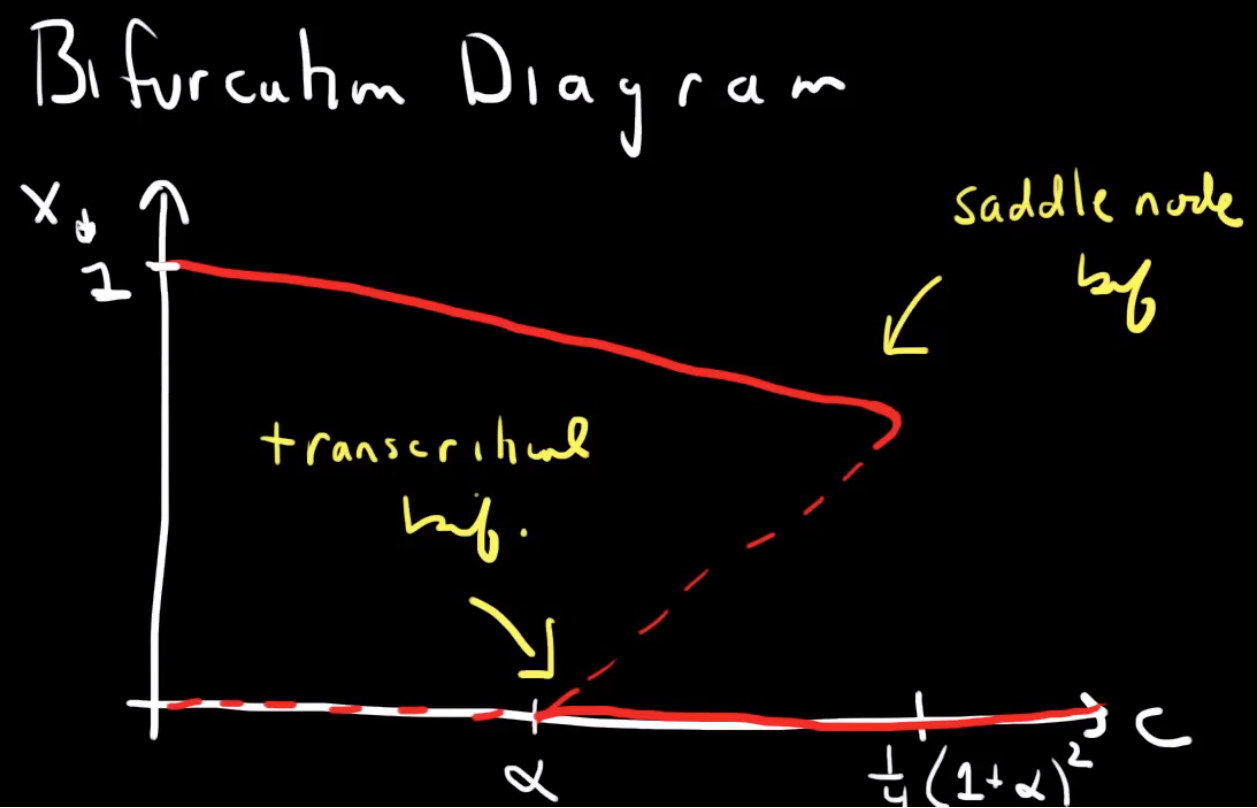 Bifurcation Diagram
x
1
saddle node
bif
transcritical
bif.
α
1/4 (1+α)²
C